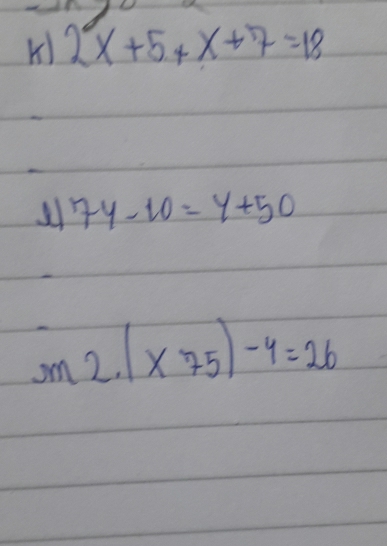 K) 2x+5+x+7=18
l) 7y-10=y+50
m 2.(x 75)-4=26